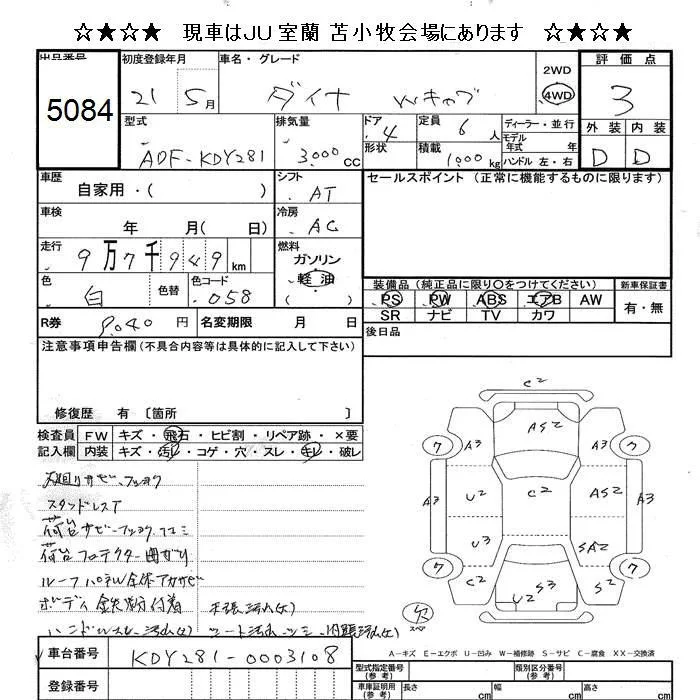 ☆★☆★ 現車はJU室蘭 苫小牧会場にあります ☆★☆★
出品番号 初度登録年月 車名・グレード 2WD 評価点
5084 21 5月 ダイナ Wキャブ 4WD 3
型式 排気量 ドア 定員 ディーラー・並行 外装 内装
4 6人 モデル年式 年
ADF-KDY281 3,000cc 形状 積載 1,000kg ハンドル 左・右 D D
車歴 シフト セールスポイント (正常に機能するものに限ります)
自家用・( ) AT
車検 冷房
年 月( 日) AC
走行 燃料
9万7千949km ガソリン
色 色替 色コード 軽油
白 058 ( )
装備品 (純正品に限り○をつけてください) 新車保証書
PS PW ABS エアB AW 有・無
SR ナビ TV カワ
R券 9,040円 名変期限 月 日 後日品
注意事項申告欄(不具合内容等は具体的に記入して下さい)
修復歴 有 〔箇所 〕
検査員 FW キズ・飛石・ヒビ割・リペア跡・×要
記入欄 内装 キズ・汚レ・コゲ・穴・スレ・キレ・破レ
下廻りサビ・フショク
スタッドレスT
荷台サビ・フショク、凹ミ
荷台プロテクター曲がり
ルーフパネル全体アカサビ
ボディ鉄粉付着 天張汚れ(大)
C2
A52
7 A3 A3 7
A3 U2 C2 A52 A3
U3 SA2
7 C2 S2 7
U2 S3
スペア
A-キズ E-エクボ U-凹み W-補修跡 S-サビ C-腐食 XX-交換済
車台番号 KDY281-0003108
登録番号
型式指定番号(参考) 類別区分番号(参考)
車庫証明用(参考) 長さ cm 幅 cm 高さ cm